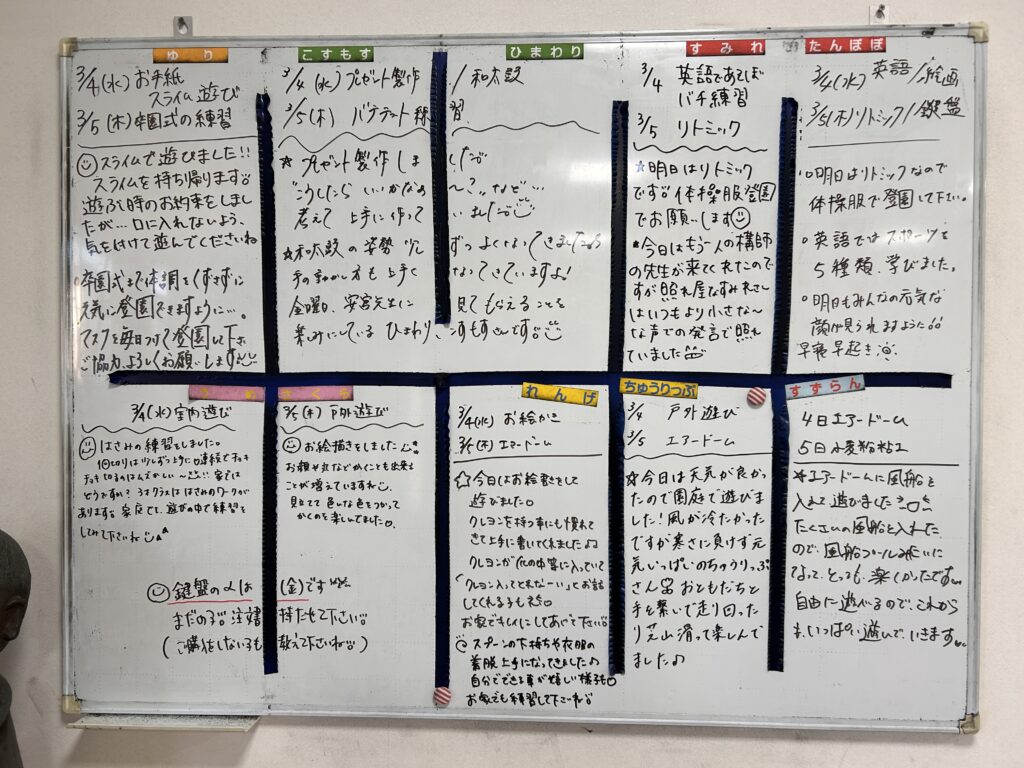 ゆり
3/4(水) お手紙
スライム遊び
3/5(木) 卒園式の練習
スライムで遊びました!!
スライムを持ち帰ります。
遊ぶ時のお約束をしまし
たが…口に入れないよう、
気を付けて遊んでくださいね
卒園式まで体調をくずさずに
元気に登園できますように…。
マスクを毎日つけて登園して下さい
ご協力よろしくお願いします
こすもす
ひまわり
3/4(水) プレゼント製作 / 和太鼓
3/5(木) バグラット練習
☆ プレゼント製作しました
こうしたらいいかなぁ〜?"など…
考えて上手に作っていました
☆和太鼓の姿勢 ずっとよくなってきました
手の動かし方も上手くなってきていますよ!
金曜日、安宮先生に見てもらえることを
楽しみにしているひまわり、こすもすさんです
すみれ
3/4 英語であそぼ
バチ練習
3/5 リトミック
☆明日はリトミック
です。体操服登園
でお願いします
*今日はもう一人の構師
の先生が来てくれたので
すが照れ屋なすみれさん
はいつもより小さな〜
な声での発言で照れ
ていました
たんぽぽ
3/4(水) 英語/絵画
3/5(木)リトミック/鍵盤
明日はリトミックなので
体操服で登園して下さい。
英語ではスポーツを
5種類、学びました。
明日もみんなの元気な
顔が見られますように
早寝早起き
3/4(水)室内遊び
はさみの練習をしました。
1回切りは少しずつ上手に。連続でチョキ
チョキ切るのはむずかしい〜!! 家では
どうですか? 3才クラスははさみのワークが
あります。家庭でも、遊びの中で練習を
してみて下さいね
さくら
3/5(木) 戸外遊び
お絵描きをしました
お顔や丸などかくことも出来る
ことが増えていますね
見立てて色んな色をつかって
かくのを楽しんでました。
鍵盤の〆は (金)です
まだの子。注文書 持たせて下さい
(ご購入をしない子も 教えて下さいね)
れんげ
3/4(水) お絵かき
3/5(木) エアードーム
☆今日はお絵書きをして
遊びました。
クレヨンを持つ事にも慣れて
きて上手に書いてくれました♪
クレヨンが他の中に入っていて
「クレヨン入ってとれなーい」とお話
してくれる子も
お家でもキレイにしてあげて下さい
スプーンの下持ちや衣服の
着脱上手になってきました♪
自分でできる事が嬉しい様子も
お家でも練習して下さいね
ちゅうりっぷ
3/4 戸外遊び
3/5 エアードーム
☆今日は天気が良かっ
たので園庭で遊びま
した!風が冷たかった
ですが寒さに負けず元
気いっぱいのちゅうりっぷ
さん おともだちと
手を繋いで走り回った
り芝山滑って楽しんで
ました♪
すずらん
4日エアードーム
5日小麦粉粘土
☆エアードームに風船を
入れて遊びました
たくさんの風船を入れた
ので、風船プールみたいに
なって、とっても楽しかったです
自由に遊べるので、これから
も、いっぱい遊んでいきます